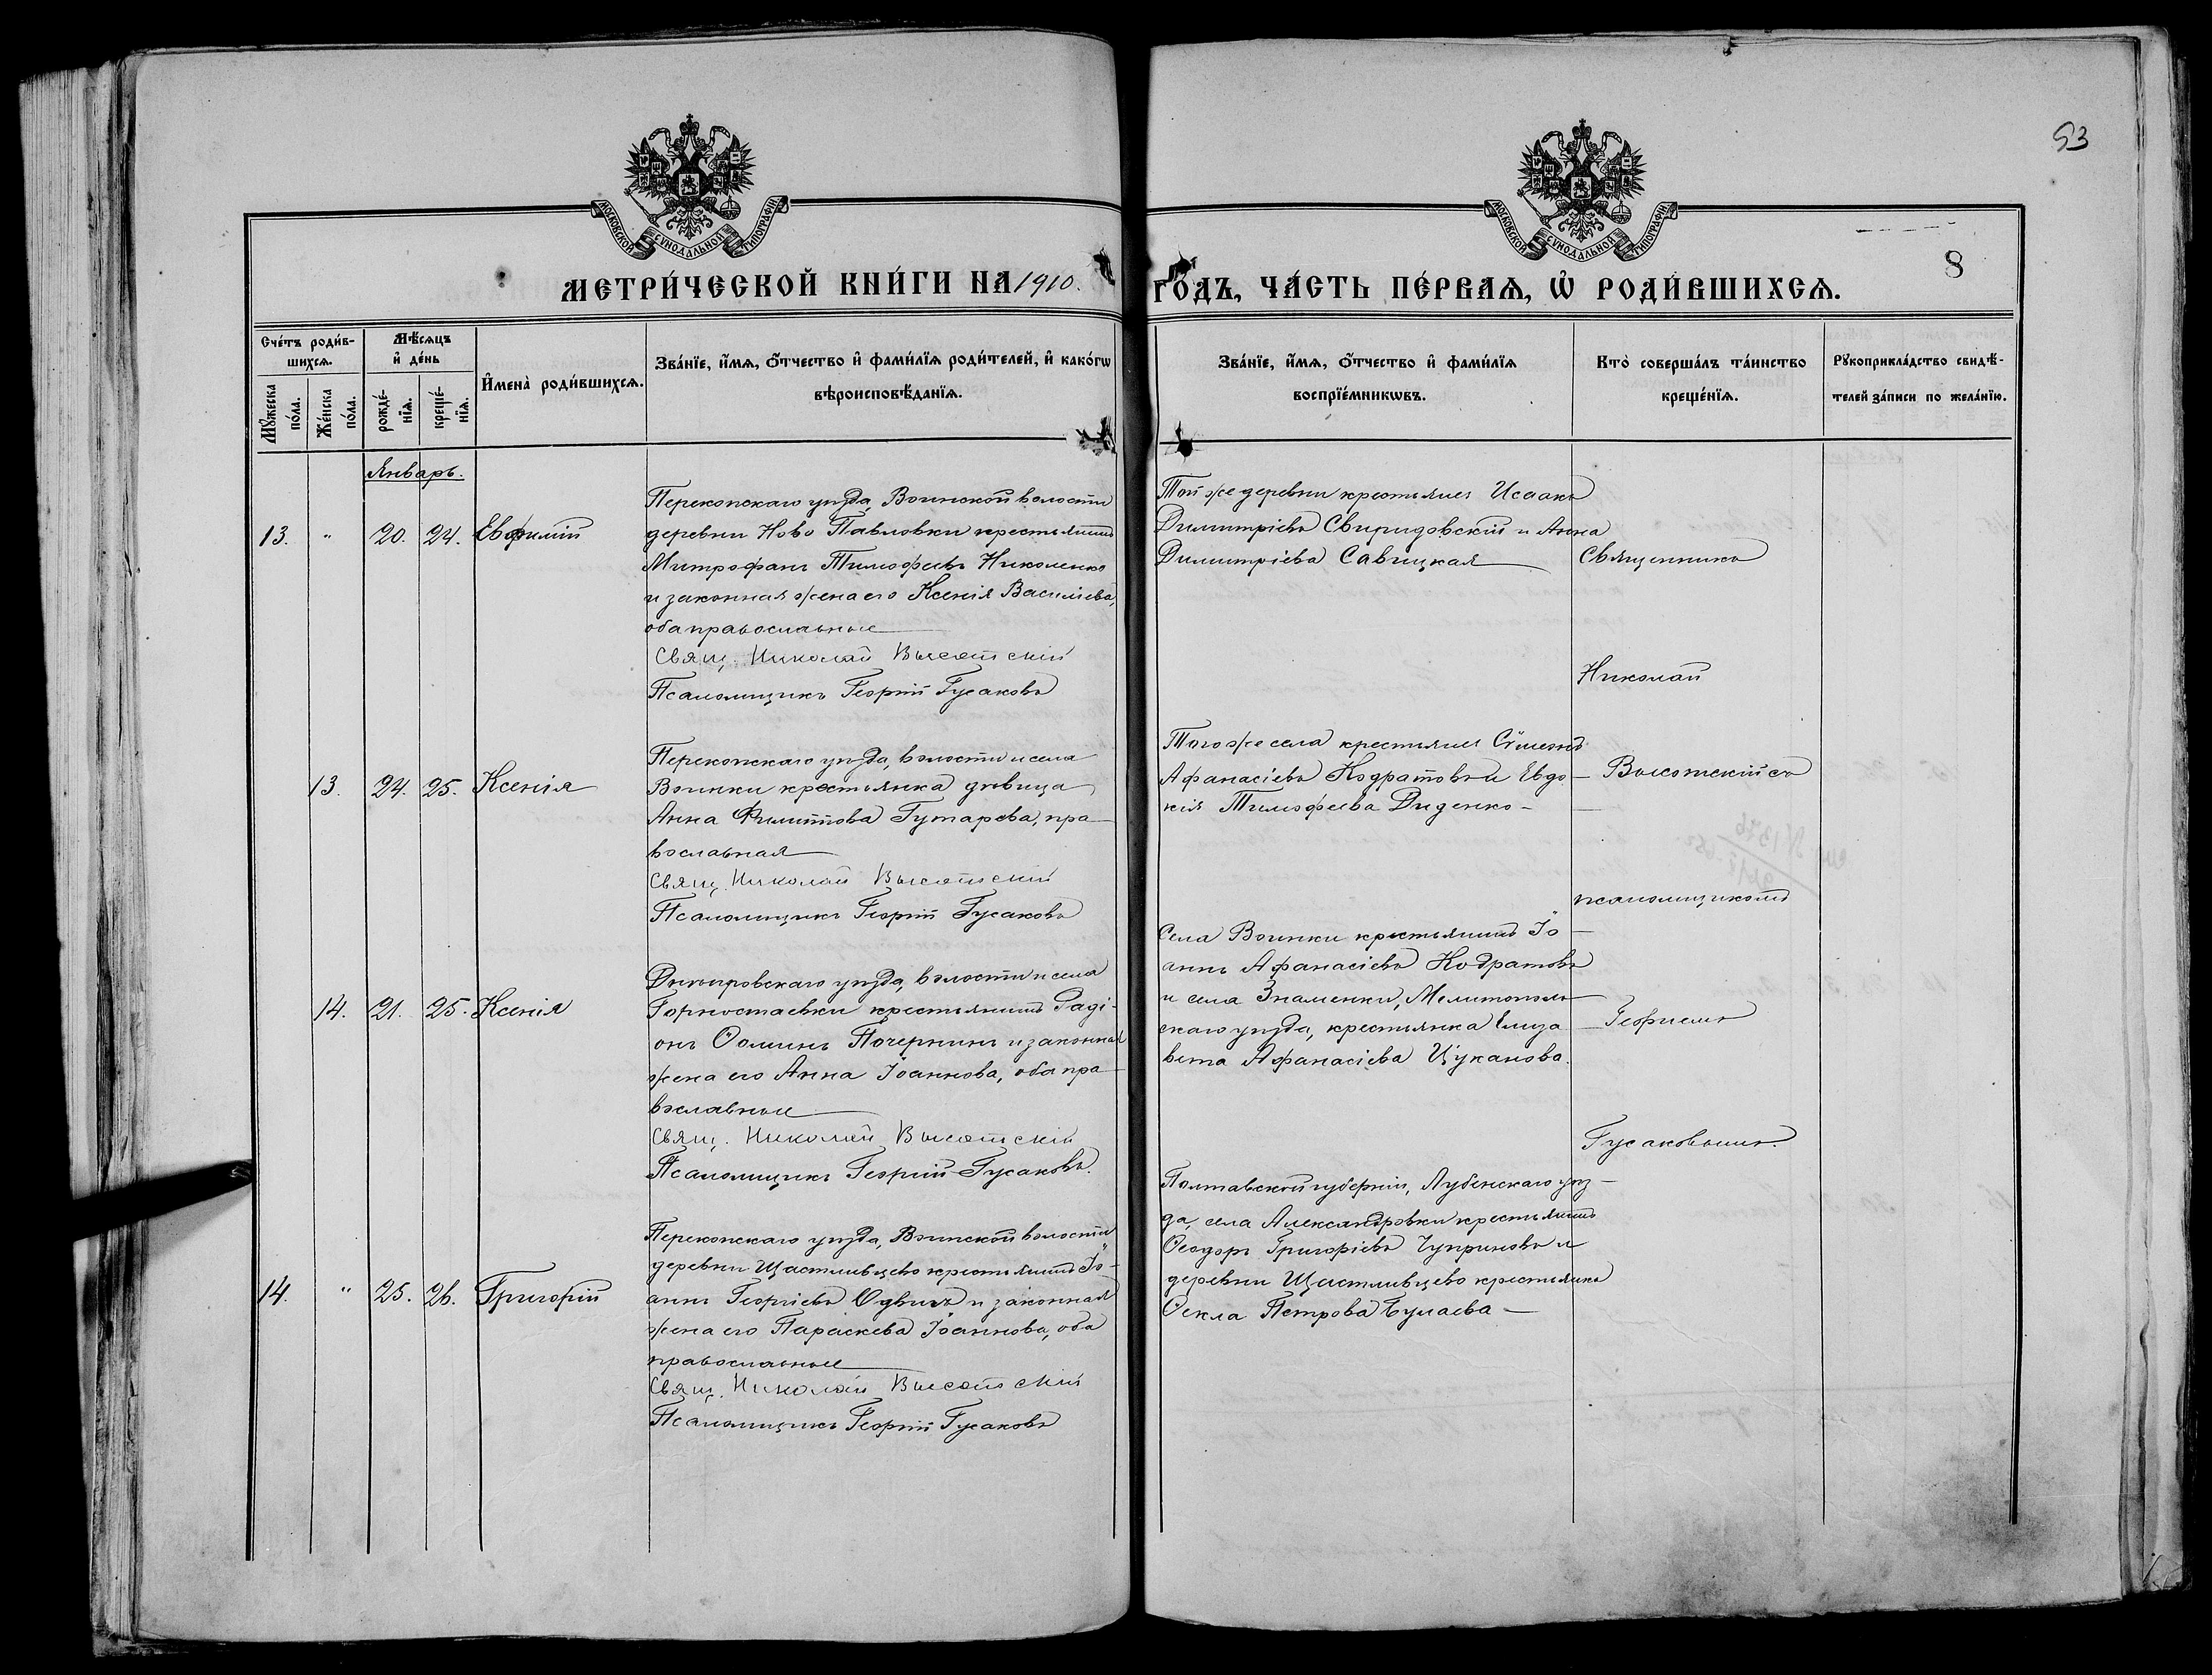 53
МОСКОВСКОЙ СѴНОДАЛЬНОЙ ТИПОГРАФІИ
МОСКОВСКОЙ СѴНОДАЛЬНОЙ ТИПОГРАФІИ
8
МЕТРИ́ЧЕСКОЙ КНИ́ГИ НА 1910.
ГО́ДЪ, ЧА́СТЬ ПЕ́РВАѦ, Ѡ҆ РОДИ́ВШИХСѦ.
Сче́тъ роди́в-
шихсѧ.
Мꙋ́жеска по́ла.
Же́нска по́ла.
Мѣ́сѧцъ
и҆ де́нь
рожде́-
нїѧ.
креще́-
нїѧ.
И҆мена̀ роди́вшихсѧ.
Зва́нїе, и҆́мѧ, ѻ҆́тчество и҆ фами́лїѧ роди́телей, и҆ како́гѡ
вѣроисповѣ́данїѧ.
Зва́нїе, и҆́мѧ, ѻ҆́тчество и҆ фами́лїѧ
воспрїе́мникѡвъ.
Кто̀ соверша́лъ та́инство
креще́нїѧ.
Рꙋкоприкла́дство свидѣ́-
телей за́писи по жела́нїю.
Январь.
13. " 20. 24. Евфимій
Перекопскаго уѣзда, Воинской волости
деревни Ново Павловки крестьянинъ
Митрофанъ Тимофеевъ Николенко
и законная жена его Ксенія Васильева,
оба православные
Свящ. Николай Высотскій
Псаломщикъ Георгій Гусаковъ
Той же деревни крестьянинъ Исаакъ
Димитріевъ Свиридовскій и Анна
Димитріева Савицкая
Священникъ
Николай
Высотскій съ
псаломщикомъ
Георгіемъ
Гусаковымъ.
13. 24. 25. Ксенія
Перекопскаго уѣзда, волости и села
Воинки крестьянка дѣвица
Анна Филиппова Гутарева, пра-
вославная
Свящ. Николай Высотскій
Псаломщикъ Георгій Гусаковъ
Того же села крестьянинъ Сѵмеонъ
Афанасіевъ Кодратовъ и Евдо-
кія Тимофеева Диденко -
14. 21. 25. Ксенія
Днѣпровскаго уѣзда, волости и села
Горностаевки крестьянинъ Раді-
онъ Ѳоминъ Почернинъ и законная
жена его Анна Іоаннова, оба пра-
вославные
Свящ. Николай Высотскій
Псаломщикъ Георгій Гусаковъ.
Села Воинки крестьянинъ Іо-
аннъ Афанасіевъ Кодратовъ
и села Знаменки, Мелитополь-
скаго уѣзда, крестьянка Елиза-
вета Афанасіева Цуканова.
14. " 25. 26. Григорій
Перекопскаго уѣзда, Воинской волости
деревни Щастливцево крестьянинъ Іо-
аннъ Георгіевъ и законная
жена его Параскева Іоаннова, оба
православные
Свящ. Николай Высотскій
Псаломщикъ Георгій Гусаковъ
Полтавской губерніи, Лубенскаго уѣз-
да, села Александровки крестьянинъ
Ѳеодоръ Григоріевъ Чуприновъ и
деревни Щастливцево крестьянка
Ѳекла Петрова Булаева -